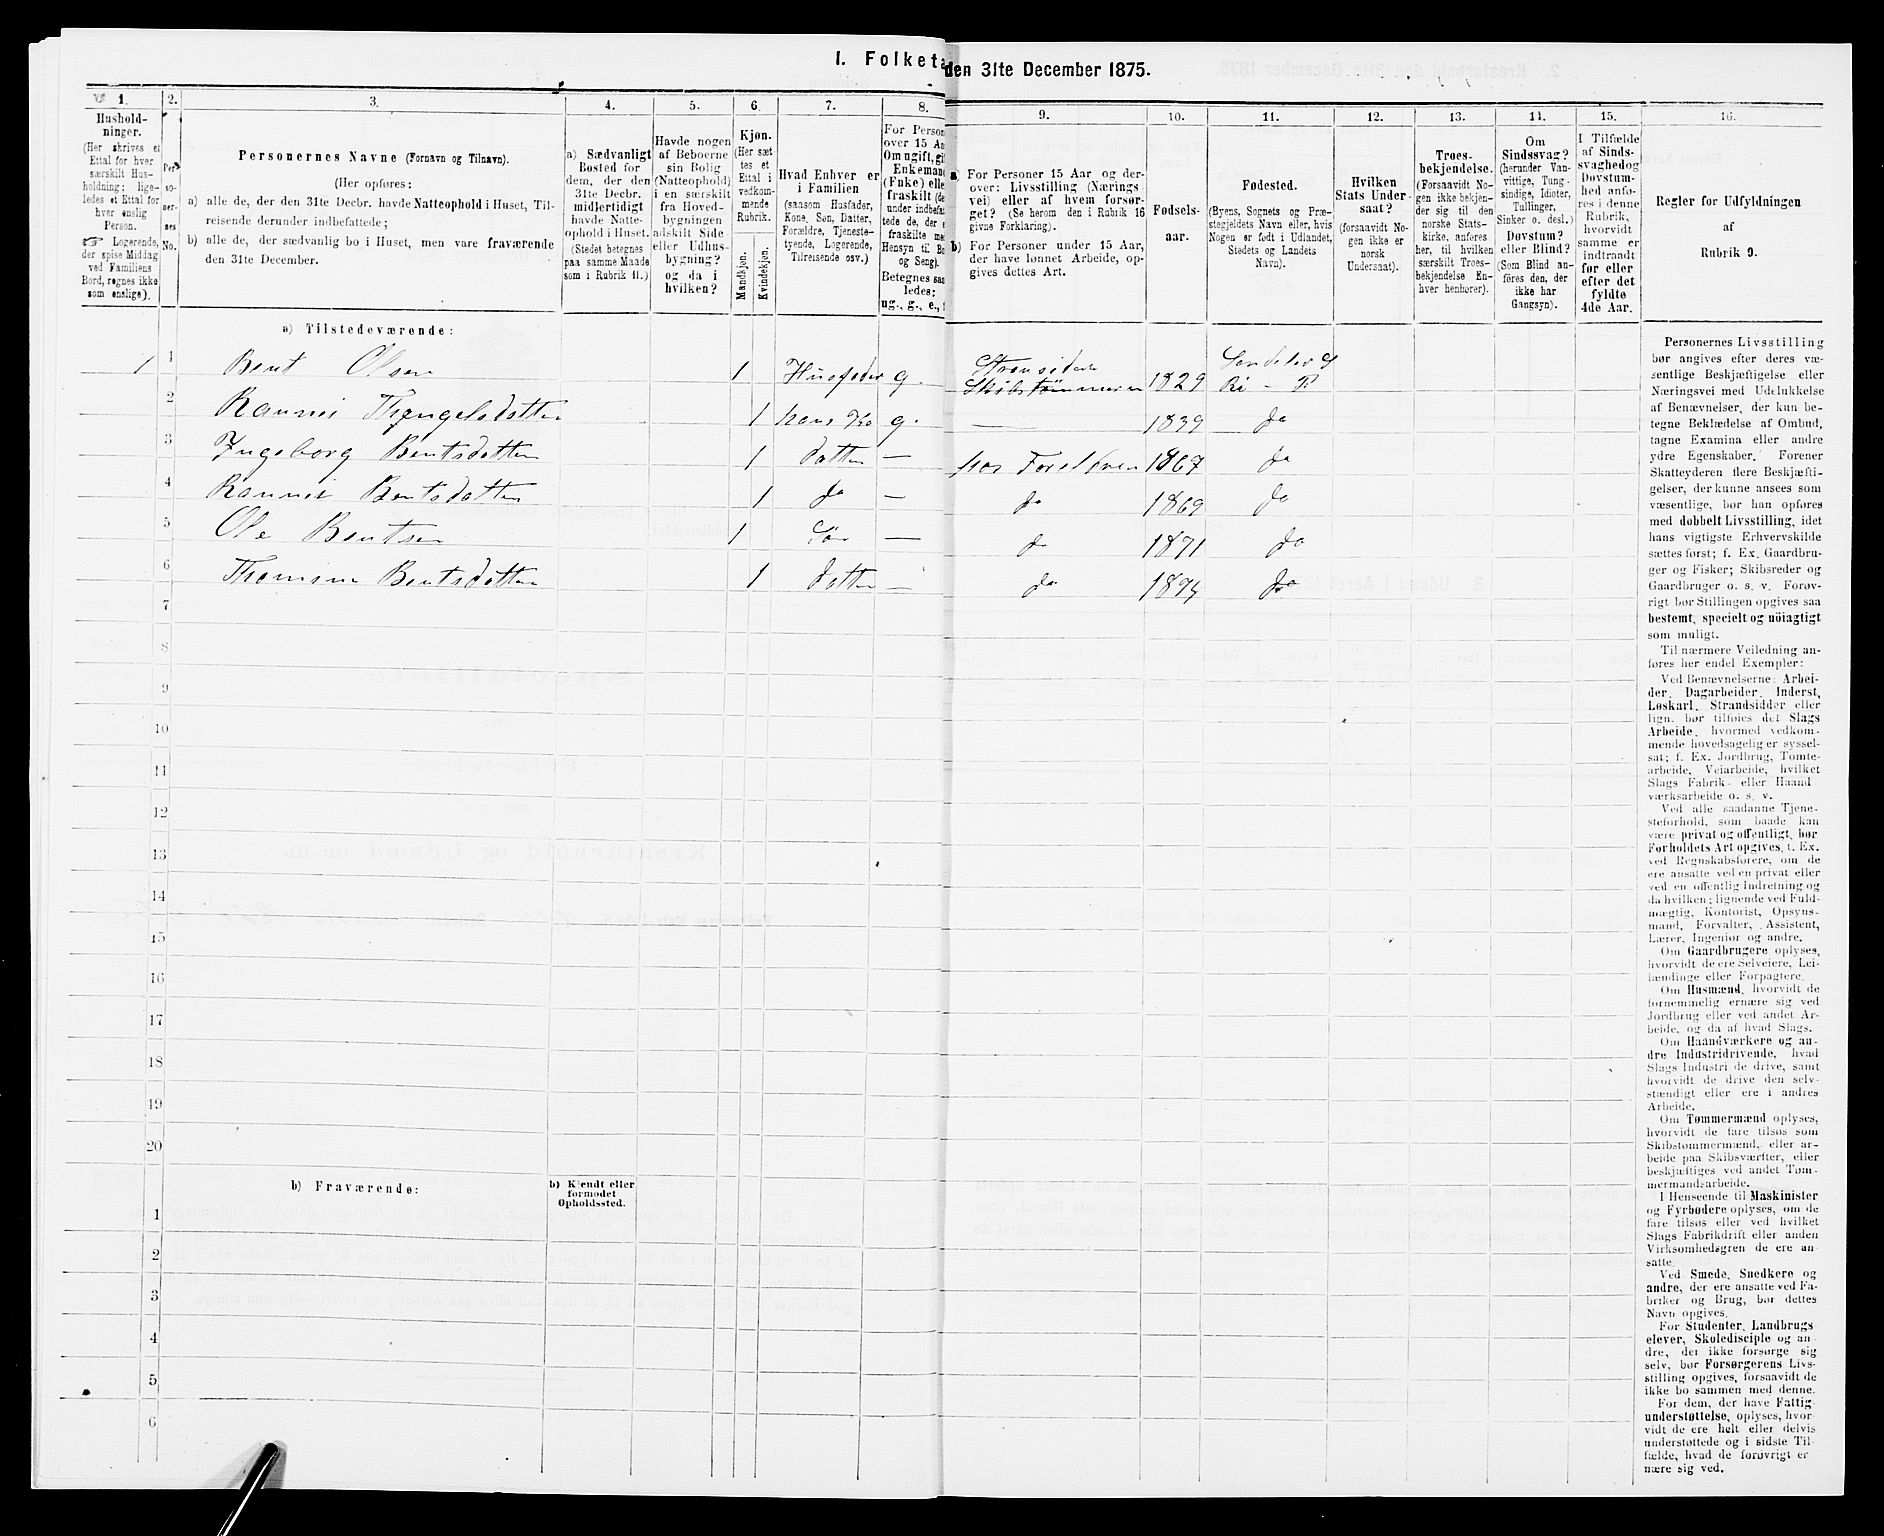 1. Folketæ den 31te December 1875.
1.
Hushold-
ninger.
(Her skrives et
Ettal for hver
særskilt Hus-
holdning; lige-
ledes et Ettal for
hver enslig
Person.
☞ Logerende,
der spise Middag
ved Familiens
Bord, regnes ikke
som enslige).
2.
Per-
so-
ner-
nes
No.
3.
Personernes Navne (Fornavn og Tilnavn).
(Her opføres:
a) alle de, der den 31te Decbr. havde Natteophold i Huset, Til-
reisende derunder indbefattede;
b) alle de, der sædvanlig bo i Huset, men vare fraværende
den 31te December.
4.
a) Sædvanligt
Bosted for
dem, der den
31te Decbr.
midlertidigt
havde Natte-
ophold i Huset.
(Stedet betegnes
paa samme Maade
som i Rubrik 11.)
5.
Havde nogen
af Beboerne
sin Bolig
(Natteophold)
i en særskilt
fra Hoved-
bygningen
adskilt Side
eller Udhus-
bygning?
og da i
hvilken?
6.
Kjøn.
(Her sæt
tes et
Ettal i
vedkom-
mende
Rubrik.
Mandkjøn.
Kvindekjøn.
7.
Hvad Enhver er
i Familien
(saasom Husfader,
Kone, Søn, Datter,
Forældre, Tjeneste-
tyende, Logerende,
Tilreisende osv.)
8.
For Person
over 15 Aa
Om ugift, gif
Enkeman
(Enke) elle
fraskilt (de
under indbefa
tede de, der
fraskilte me
Hensyn til Bo
og Seng).
Betegnes saa
ledes:
ug., g., e.,
9.
a) For Personer 15 Aar og der-
over: Livsstilling (Nærings-
vei) eller af hvem forsør-
get? (Se herom den i Rubrik 16
givne Forklaring).
b) For Personer under 15 Aar,
der have lønnet Arbeide, op-
gives dettes Art.
10.
Fødsels-
aar.
11.
Fødested.
(Byens, Sognets og Præ-
stegjeldets Navn eller, hvis
Nogen er født i Udlandet,
Stedets og Landets
Navn).
12.
Hvilken
Stats Under-
saat?
(forsaavidt No-
gen ikke er
norsk
Undersaat).
13.
Troes-
bekjendelse.
(Forsaavidt No-
gen ikke bekjen-
der sig til den
norske Stats-
kirke, anføres
her, til hvilken
særskilt Troes-
bekjendelse En-
hver henhører).
14.
Om
Sindssvag?
(herunder Van-
vittige, Tung-
sindige, Idioter,
Tullinger,
Sinker o. desl.)
Døvstum?
eller Blind?
(Som Blind an-
føres den, der
ikke har
Gangsyn).
15.
I Tilfælde
af Sinds-
svaghed og
Døvstum-
hed anfø-
res i denne
Rubrik,
hvorvidt
samme er
indtraadt
før eller
efter det
fyldte
4de Aar.
16.
Regler for Udfyldningen
af
Rubrik 9.
a) Tilstedeværende:
1 1 Bent Olsen 1 Husfader g. Strandsidder Skibstømmerm 1829
2 Rannei Thengelsdatter 1 hans Ko g. — 1839 do
3 Ingeborg Bentsdatter 1 datter — hos Forelđren 1867 do
4 Rannei Bentsdatter 1 do — do 1869 do
5 Ole Bentsen 1 Søn — do 1871 do
6 Thomine Bentsdatter 1 datter — do do
7
8
9
10
11
12
13
14
15
16
17
18
19
20
b) Fraværende:
b) Kjendt eller
formodet
Opholdssted.
1
2
3
4
5
6
Personernes Livsstilling
bør angives efter deres væ-
sentlige Beskjæftigelse eller
Næringsvei med Udelukkelse
af Benævnelser, der kun be-
tegne Beklædelse af Ombud,
tagne Examina eller andre
ydre Egenskaber. Forener
Skatteyderen flere Beskjæfti-
gelser, der kunne ansees som
væsentlige, bør han opføres
med dobbelt Livsstilling, idet
hans vigtigste Erhvervskilde
sættes først; f. Ex. Gaardbru-
ger og Fisker; Skibsreder og
Gaardbruger o. s. v. Forøv-
rigt bør Stillingen opgives saa
bestemt, specielt og nöiagtigt
som muligt.
Til nærmere Veiledning an-
føres her endel Exempler:
Ved Benævnelserne: Arbei-
der, Dagarbeider, Inderst,
Løskarl, Strandsidder eller
lign. bør tilføies det Slags
Arbeide, hvormed vedkom-
mende hovedsagelig er syssel-
sat; f. Ex. Jordbrug, Tomte-
arbeide, Veiarbeide, hvilket
Slags Fabrik- eller Haand-
værksarbeide o. s. v.
Ved alle saadanne Tjene-
steforhold, som baade kan
være privat og offentligt, bør
Forholdets Art opgives, f. Ex.
ved Regnskabsførere, om de
ere ansatte ved en privat eller
ved en offentlig Indretning og
da hvilken; lignende ved Fuld-
mægtig, Kontorist, Opsyns-
mand, Forvalter, Assistent,
Lærer, Ingeniør og andre.
Om Gaardbrugere oplyses,
hvorvidt de ere Selveiere, Lei-
lændinge eller Forpagtere.
Om Husmænd, hvorvidt de
fornemmelig ernære sig ved
Jordbrug eller ved andet Ar-
beide, og da af hvad Slags.
Om Haandværkere og an-
dre Industridrivende, hvad
Slags Industri de drive, samt
hvorvidt de drive den selv-
stændigt eller ere i andres
Arbeide.
Om Tømmermænd oplyses,
hvorvidt de fare tilsøs som
Skibstømmermænd, eller ar-
beide paa Skibsværfter, eller
beskjæftiges ved andet Tøm-
mermandsarbeide.
I Henseende til Maskinister
og Fyrbødere oplyses, om de
fare tilsøs eller ved hvilket
Slags Fabrikdrift eller anden
Virksomhedsgren de ere an-
satte.
Ved Smede, Snedkere og
andre, der ere ansatte ved Fa-
briker og Brug, bør dettes
Navn opgives.
For Studenter, Landbrugs
elever, Skoledisciple og an-
dre, der ikke forsørge sig
selv, bør Forsørgerens Livs-
stilling opgives, forsaavidt de
ikke bo sammen med denne.
For dem, der have Fattig
understøttelse, oplyses, hvor-
vidt de ere helt eller delvis
understøttede og i sidste Til-
fælde, hvad de forøvrigt er
nære sig ved.